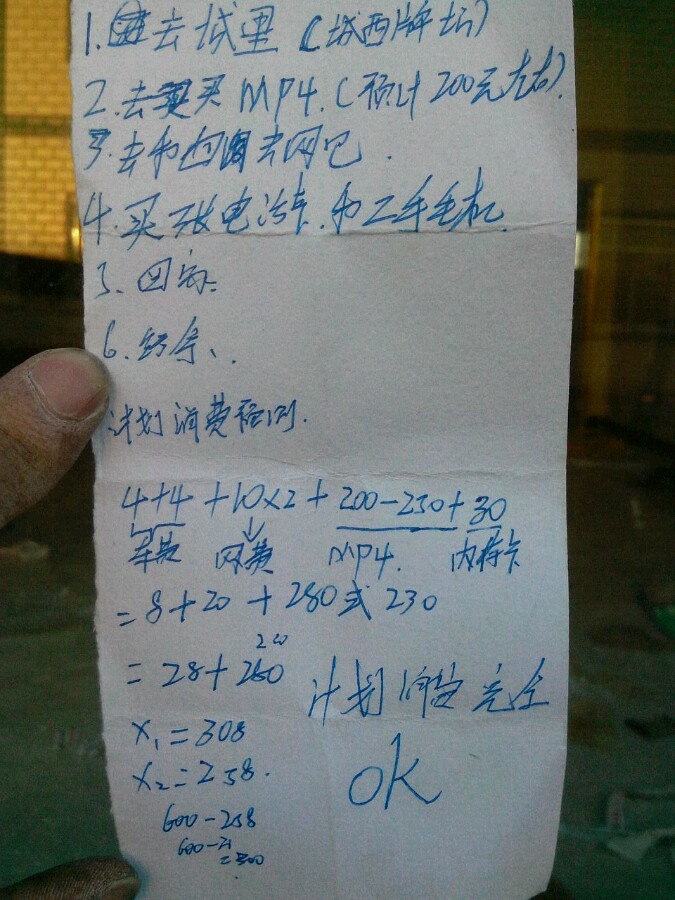 1.去城里（城西牌坊）
2.去买MP4.（预计200元左右）.
3.去和同去网吧.
4.买张电话卡.和二手手机
5、回家.
6.结余、.
计划消费预测.
4+4+10×2+200-250+30
车费 网费 MP4. 内存卡
=8+20+280或230
230
=28+280
计划消费完全
OK
X₁=308
X₂=258.
600-258
600-21
=300